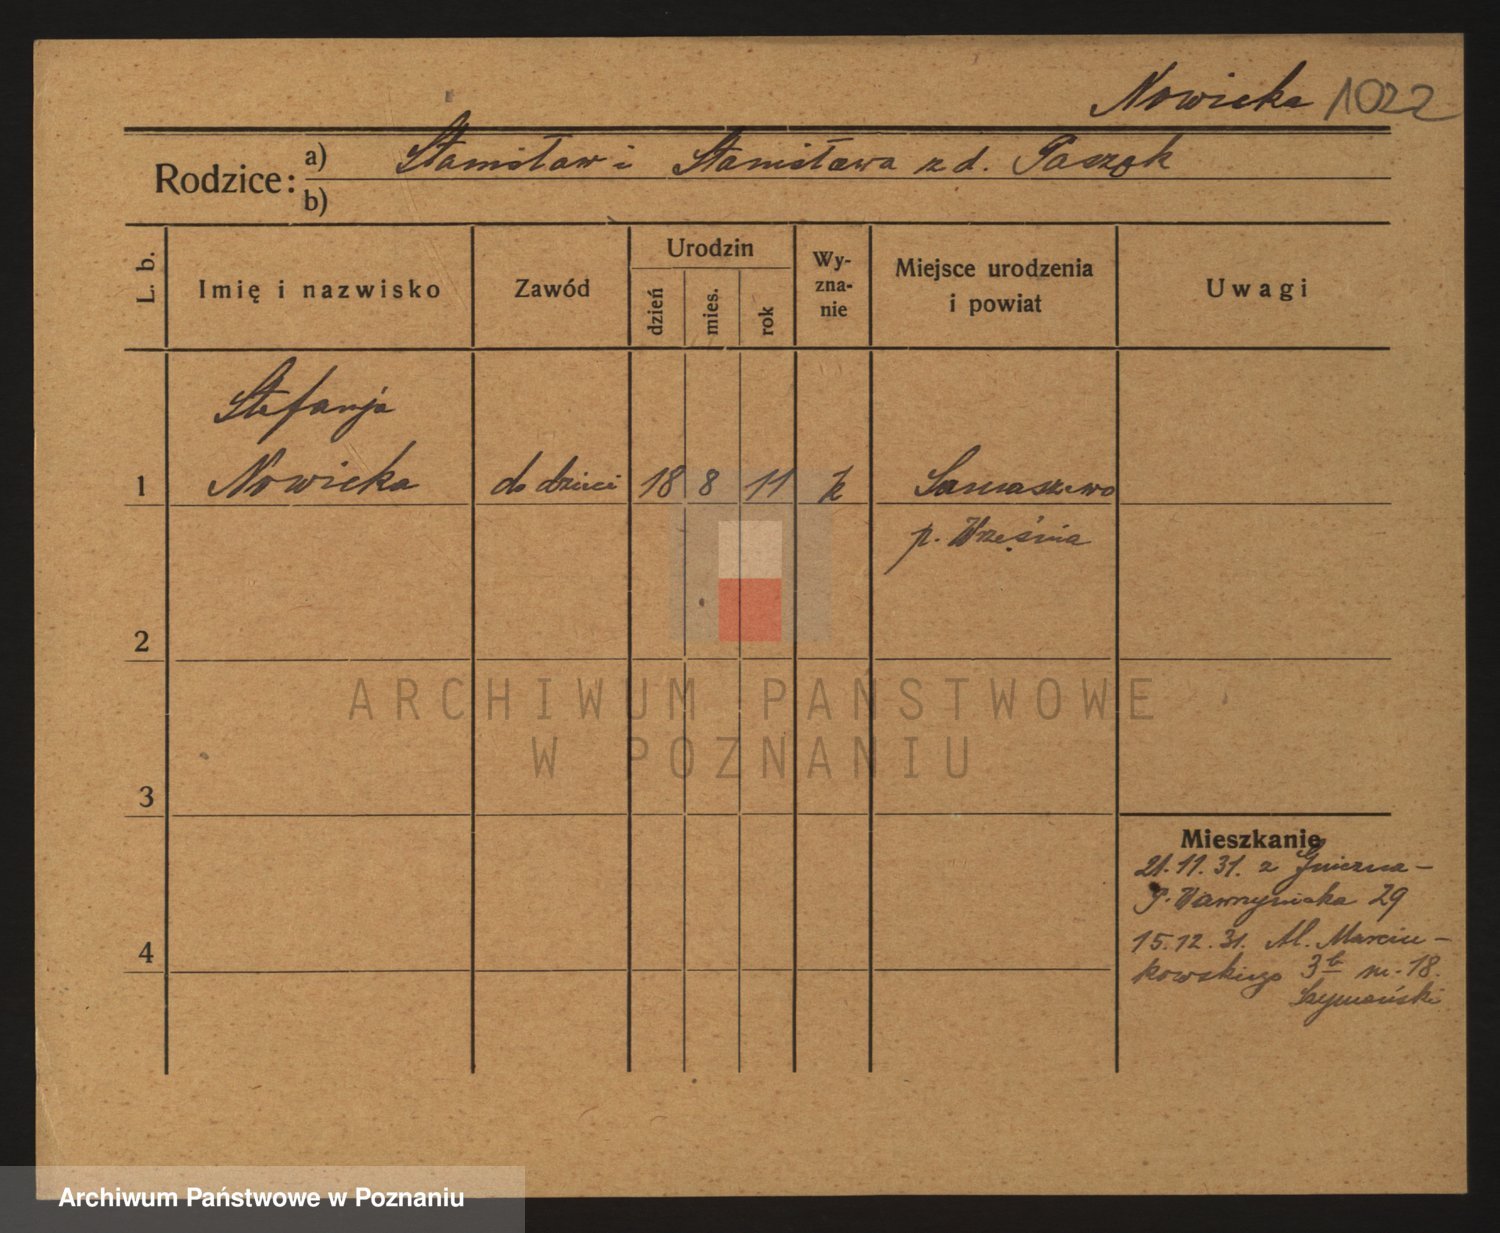 Nowicka 1022
Rodzice: a) Stanisław i Stanisława z d. Paszak
b)
L. b.
Imię i nazwisko
Zawód
Urodzin
dzień
mies.
rok
Wy-
zna-
nie
Miejsce urodzenia
i powiat
Uwagi
Stefanja
1 Nowicka do dzieci 18 8 11 k
p. Września
2
ARCHIWUM PAŃSTWOWE
W POZNANIU
3
4
Mieszkanie
21.11.31. z Gniezna -
P. Wawrzyniaka 29
15.12.31. Al. Marcin-
kowskiego 3b m. 18.
Szymański
Archiwum Państwowe w Poznaniu